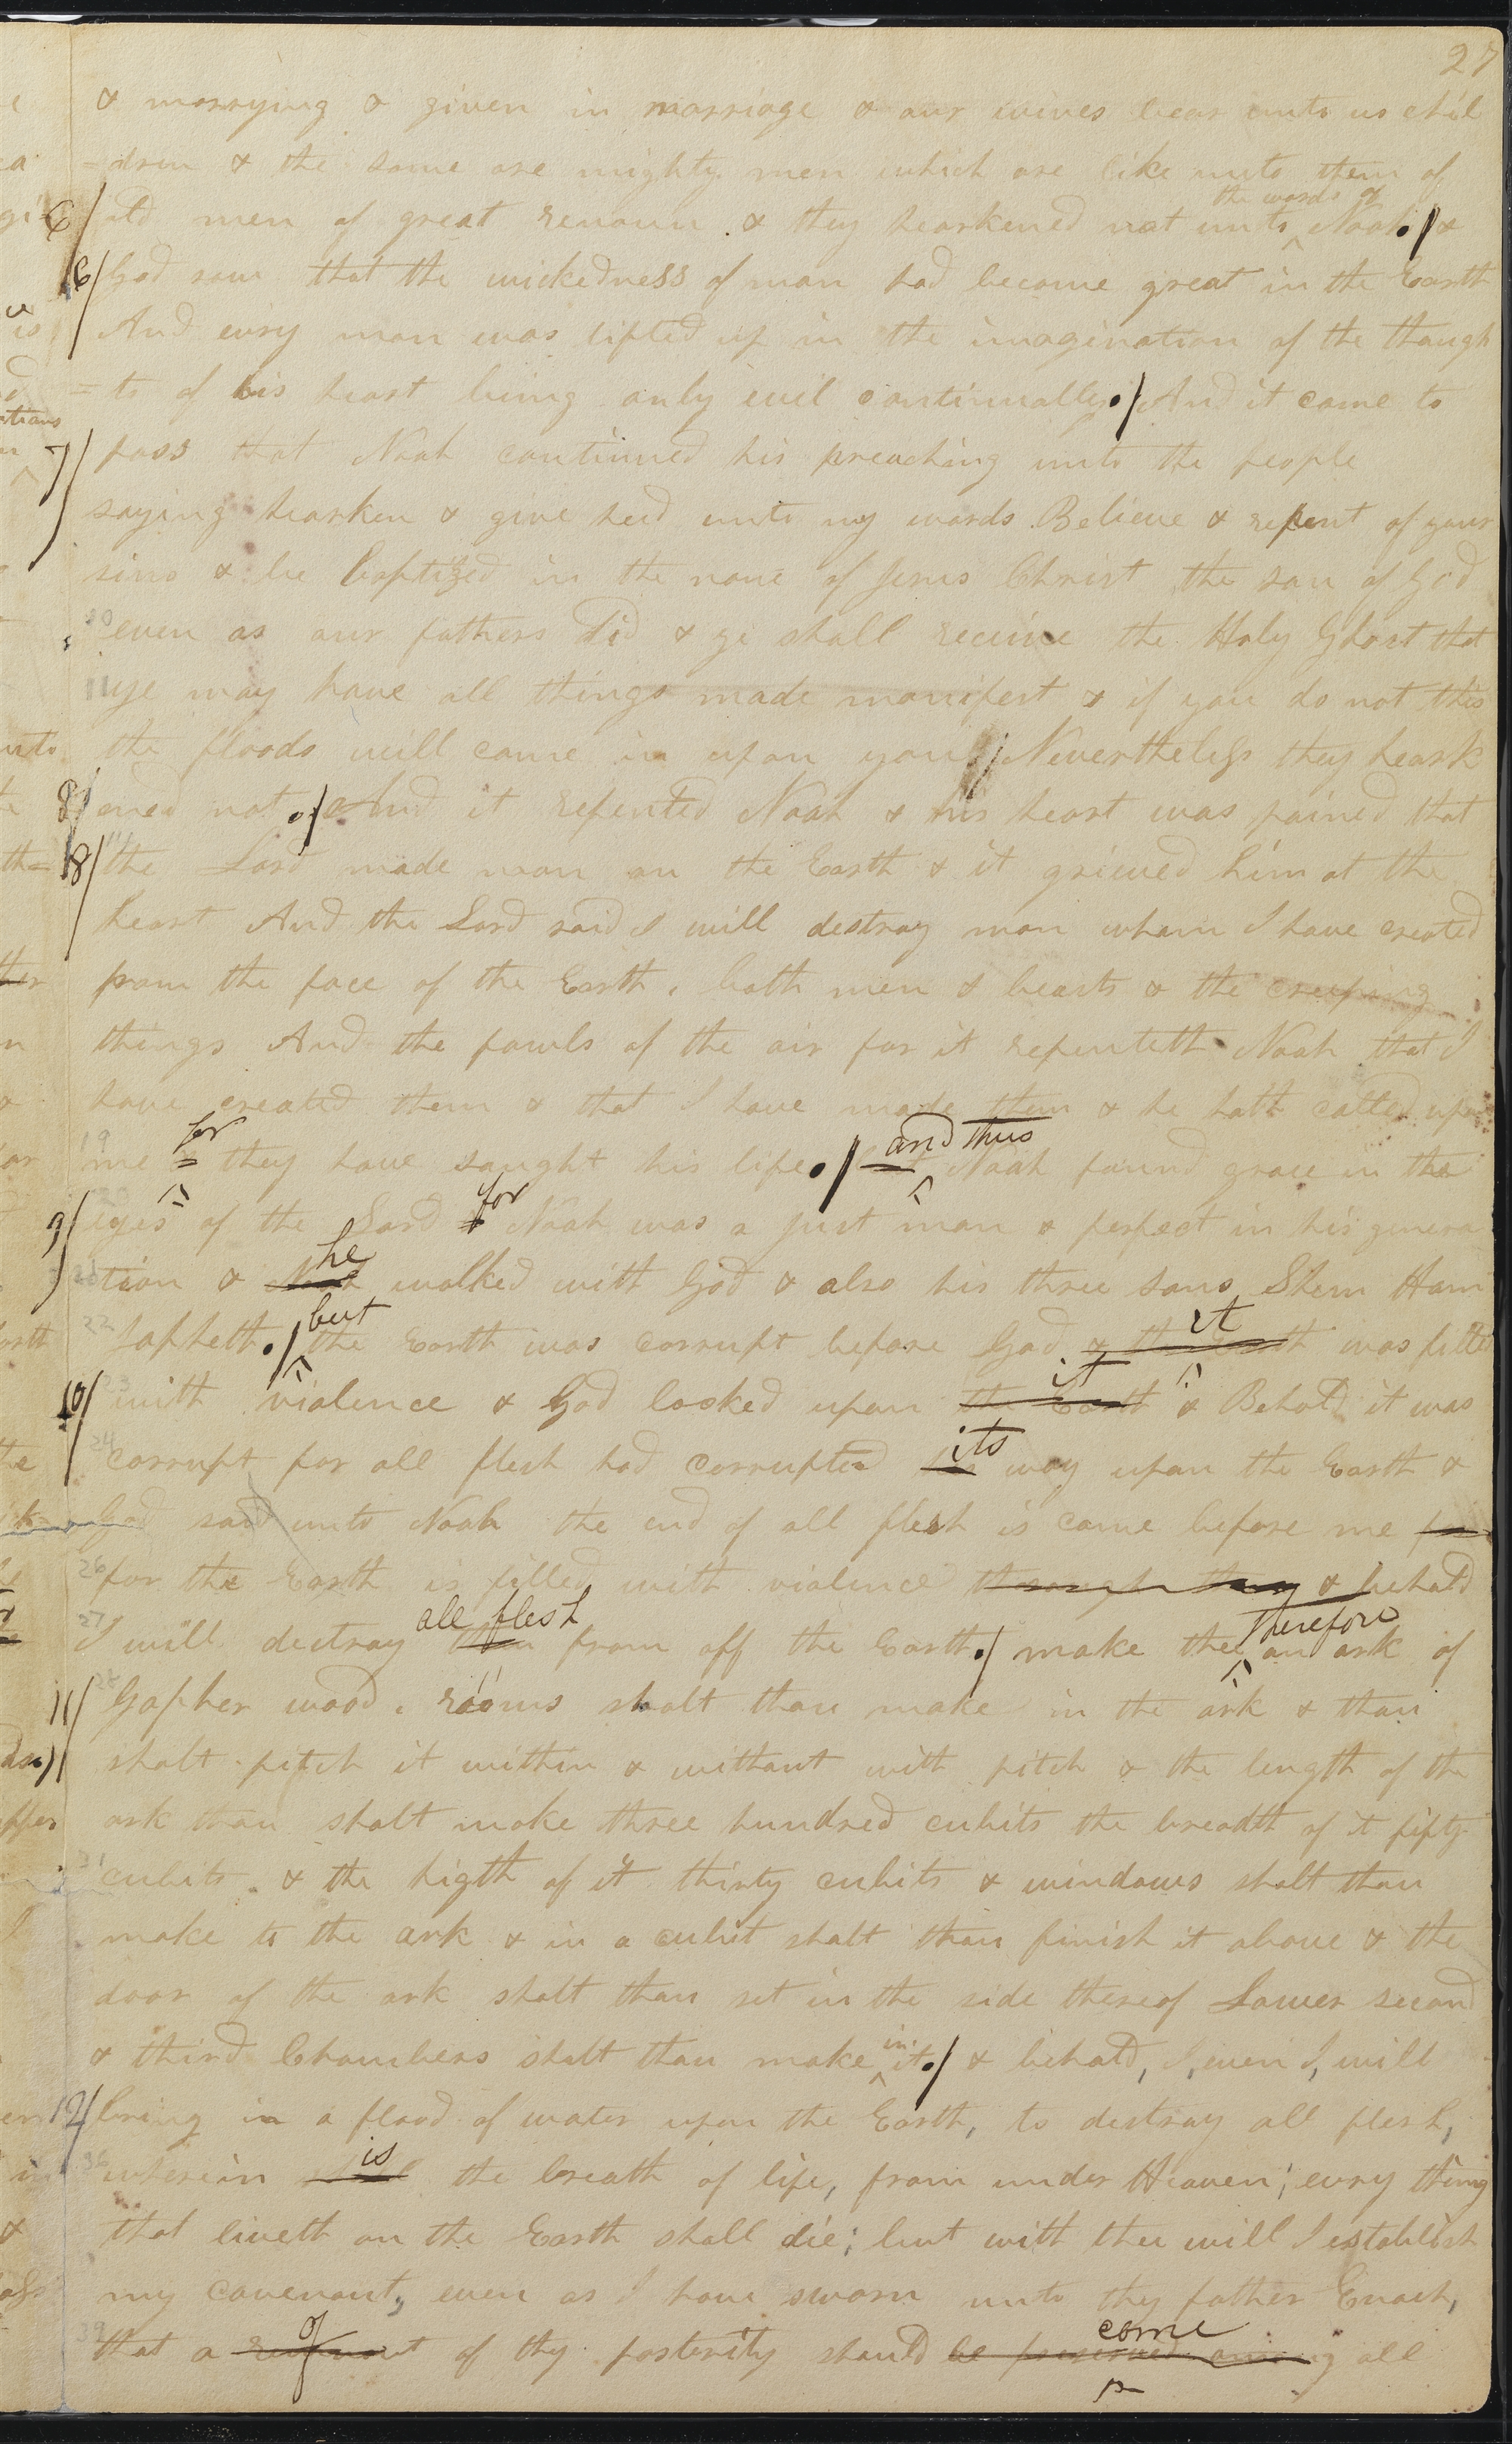 27
& marrying & given in marriage & our wives bear unto us chil
=dren & the same are mighty men which are like unto them of
the words of
6/ old men of great renoun. & they hearkened not unto ^ Noah./ &
6/ God saw that the wickedness of man had become great in the Earth
And evry man was lifted up in the imagination of the though
=ts of his heart being only evil continually./ And it came to
7/ pass that Noah continued his preaching unto the people
saying hearken & give heed unto my words. Believe & repent of your
sins & be baptized in the name of Jesus Christ the son of God
even as our fathers did & ye shall receive the Holy Ghost that
ye may have all things made manifest & if you do not this
the floods will come in upon you / Nevertheless they heark
8/ ened not./ And it repented Noah & his heart was pained that
18/ the Lord made man on the Earth & it grieved him at the
heart And the Lord said I will destroy man whom I have created
from the face of the Earth, both men & beasts & the creeping
things And the fowls of the air for it repenteth Noah that I
have created them & that I have made them & he hath called upon
for and thus
19 me & they have saught his life./ ^ Noah found grace in the
for
9/ eyes of the Lord & Noah was a just man & perfect in his genera
he
tion & Noah walked with God & also his three sons Shem Ham
but it
22 Japheth./ ^ the Earth was corrupt before God & the Earth ^ was filled
it
10/ with violence & God looked upon the Earth & Behold it was
its
24 corrupt for all flesh had corrupted his way upon the Earth &
God said unto Noah the end of all flesh is come before me for
26 for the Earth is filled with violence through them & behold
all flesh therefore
27 I will destroy them from off the Earth./ make thee ^ an ark of
11/ Gopher wood. rooms shalt thou make in the ark & thou
shalt pitch it within & without with pitch & the length of the
ark thou shalt make three hundred cubits the breadth of it fifty
cubits. & the higth of it thirty cubits & windows shalt thou
make to the ark & in a cubit shalt thou finish it above & the
door of the ark shalt thou set in the side thereof Lower second
in
& third Chambers shalt thou make ^ it./ & behold, I, even I, will
12/ bring in a flood of water upon the Earth, to destroy all flesh,
is
36 wherein the breath of life, from under Heaven; evry thing
that liveth on the Earth shall die; but with thee will I establish
my covenant, even as I have sworn unto thy father Enoch,
of come
39 that a remnant of thy posterity should be preserved among all